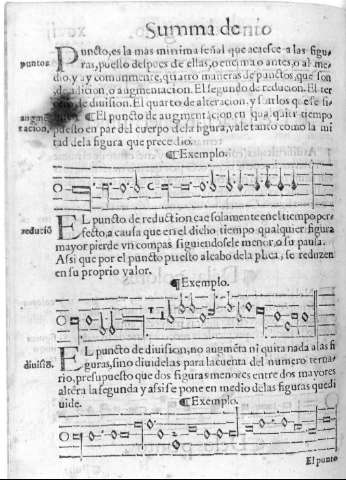 Summa de no
Puncto, es la mas minima señal que acaesce a las figu-
puntos ras, puesto despues de ellas, o encima o antes, o al me-
dio, y ay comunmente, quatro maneras de punctos, que son
de adicion, o augmentacion. El segundo de reducion. El ter
cero, de diuision. El quarto de alteracion, y
augmē tacion, ¶ El puncto de augmentacion en qualquier tiempo
puesto en par del cuerpo de la figura, vale tanto como la mi
tad de la figura que precedio.
¶ Exemplo.
reduciō EL puncto de reduction cae solamente en el tiempo per
fecto, a causa que en el dicho tiempo qualquier figura
mayor pierde vn compas siguiendosele menor, o su pausa.
Assi que por el puncto puesto al cabo de la plica, se reduzen
en su proprio valor.
¶ Exemplo.
diuisiō. EL puncto de diuision, no augmēta ni quita nada a las fi
guras, sino diuidelas para la cuenta del numero terna-
rio, presupuesto que dos figuras menores entre dos mayores
altera la segunda y assi se pone en medio de las figuras que di
uide.
¶ Exemplo.
El punto